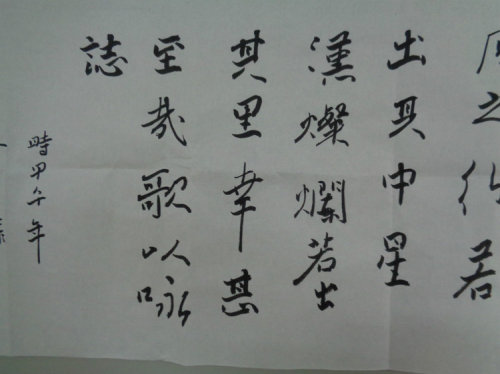 月之行若
出其中星
漢燦爛若出
其里幸甚
至哉歌以咏
誌
時甲午年